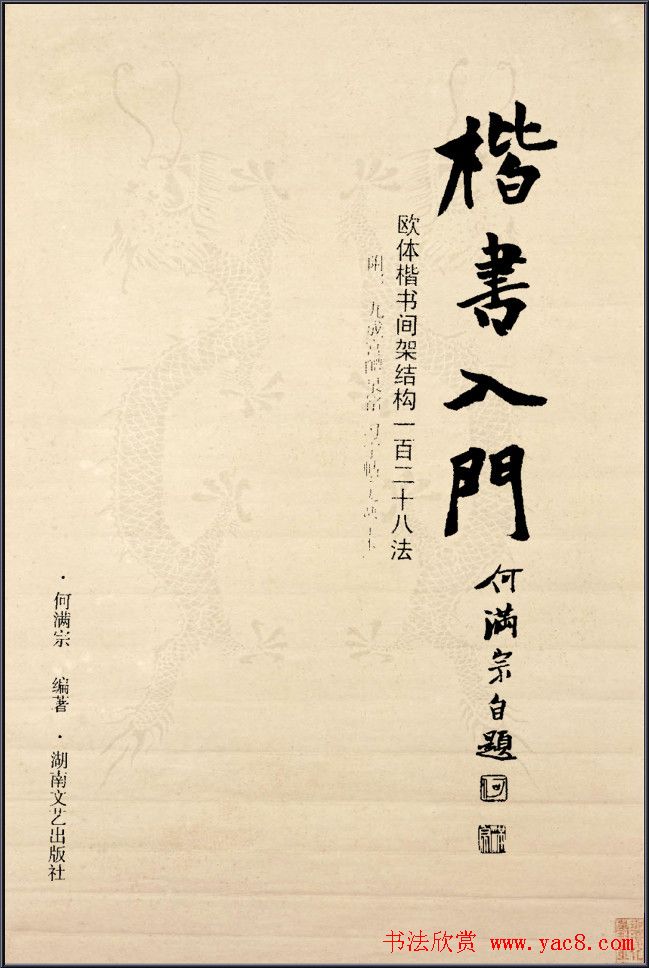 楷書入門
何满宗自題
欧体楷书间架结构一百二十八法
·何满宗 编著·湖南文艺出版社
书法欣赏 www.yac8.com